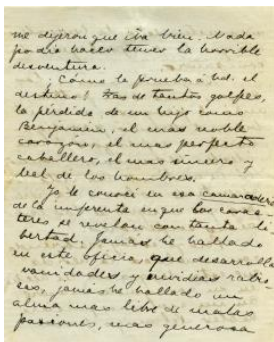 me dijeron que iba bien. Nada
podía hacer temer la horrible
desventura.
¡Cómo lo prueba á Vd. el
destino! Tras de tantos golpes,
la pérdida de un hijo como
Benjamin, el mas noble
corazon, el mas perfecto
caballero, el mas sincero y
leal de los hombres.
Yo le conocí en esa camaradería
de la imprenta en que los carac-
teres se revelan con tanta li-
bertad. Jamás he hallado
en este oficio, que desarrolla
vanidades y envidias rabio-
sas, jamás he hallado un
alma mas libre de malas
pasiones, mas generosa